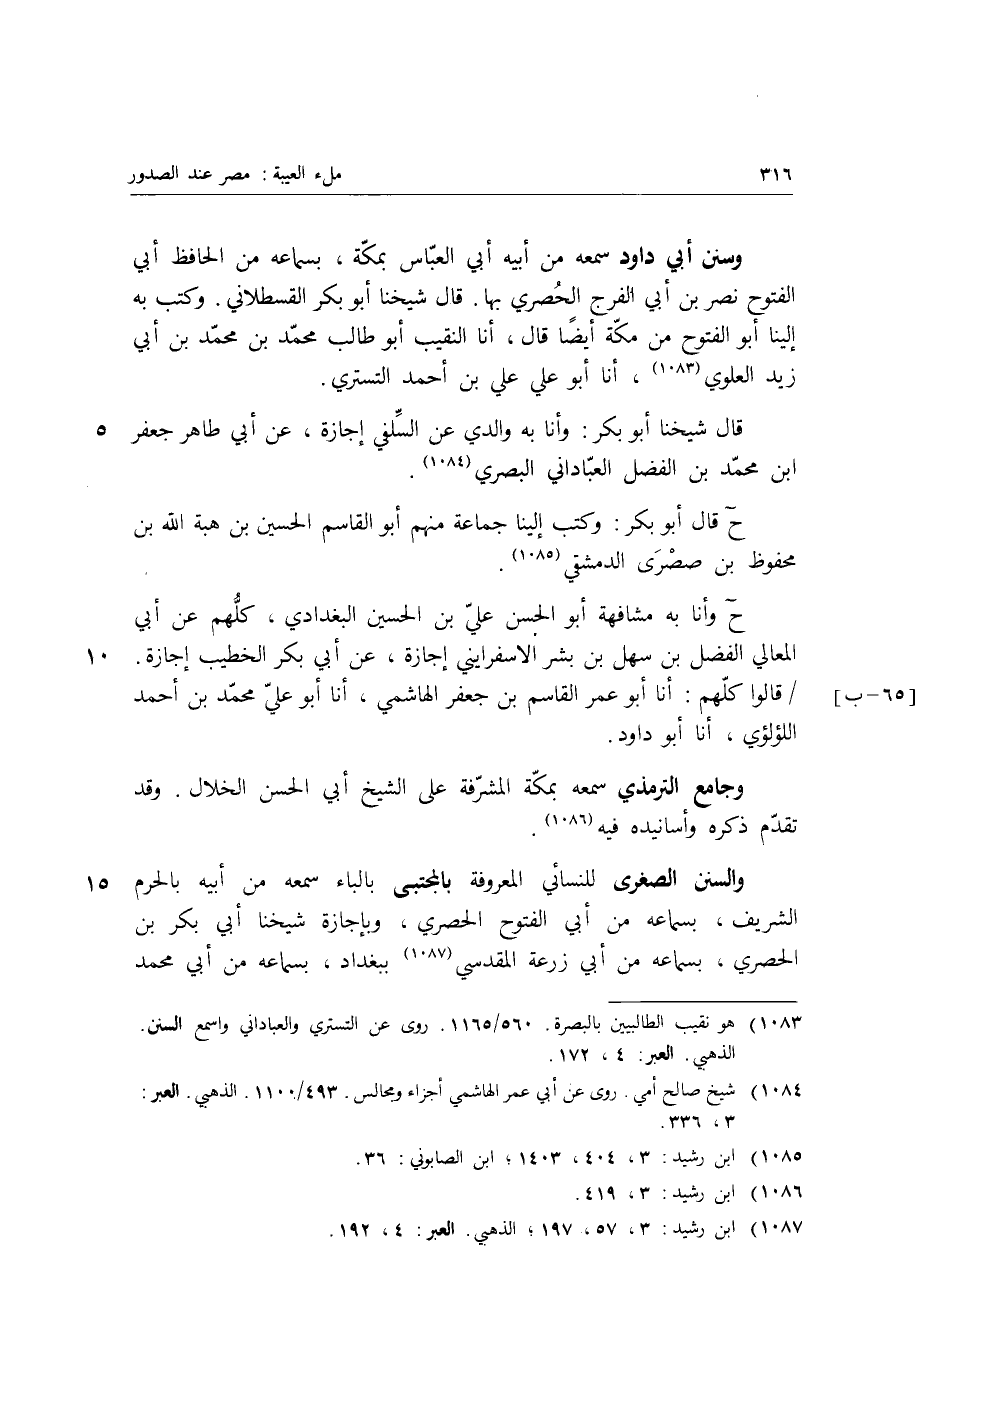 ٣١٦ ملء العيبة : مصر عند الصدور
وسنن أبي داود سمعه من أبيه أبي العبّاس بمكّة ، بسماعه من الحافظ أبي
الفتوح نصر بن أبي الفرج الحُصري بها. قال شيخنا أبو بكر القسطلاني. وكتب به
إلينا أبو الفتوح من مكّة أيضًا قال ، أنا النقيب أبو طالب محمّد بن محمّد بن أبي
زيد العلوي(١٠٨٣) ، أنا أبو علي علي بن أحمد التستري.
قال شيخنا أبو بكر : وأنا به والدي عن السِّلفي إجازة ، عن أبي طاهر جعفر ٥
ابن محمّد بن الفضل العبّاداني البصري(١٠٨٤).
حّ قال أبو بكر : وكتب إلينا جماعة منهم أبو القاسم الحسين بن هبة الله بن
محفوظ بن صصْرَى الدمشقي(١٠٨٥).
حّ وأنا به مشافهة أبو الحسن عليّ بن الحسين البغدادي ، كلُّهم عن أبي
المعالي الفضل بن سهل بن بشر الاسفرايني إجازة ، عن أبي بكر الخطيب إجازة. ١٠
[٦٥-ب] / قالوا كلّهم : أنا أبو عمر القاسم بن جعفر الهاشمي ، أنا أبو عليّ محمّد بن أحمد
اللؤلؤي ، أنا أبو داود.
وجامع الترمذي سمعه بمكّة المشرّفة على الشيخ أبي الحسن الخلال. وقد
تقدّم ذكره وأسانيده فيه(١٠٨٦).
والسنن الصغرى للنسأي المعروفة بالمجتبى بالباء سمعه من أبيه بالحرم ١٥
الشريف ، بسماعه من أبي الفتوح الحصري ، وبإجازة شيخنا أبي بكر بن
الحصري ، بسماعه من أبي زرعة المقدسي(١٠٨٧) ببغداد ، بسماعه من أبي محمد
١٠٨٣) هو نقيب الطالبيين بالبصرة. ١١٦٥/٥٦٠. روى عن التستري والعباداني واسمع السنن.
الذهبي. العبر: ٤ ، ١٧٢.
١٠٨٤) شيخ صالح أمي. روى عن أبي عمر الهاشمي أجزاء ومجالس. ١١٠٠/٤٩٣. الذهبي. العبر :
٣ ، ٣٣٦.
١٠٨٥) ابن رشيد : ٣ ، ٤٠٤ ، ١٤٠٣ ؛ ابن الصابوني : ٣٦.
١٠٨٦) ابن رشيد : ٣ ، ٤١٩.
١٠٨٧) ابن رشيد : ٣ ، ٥٧ ، ١٩٧ ؛ الذهبي. العبر : ٤ ، ١٩٢.